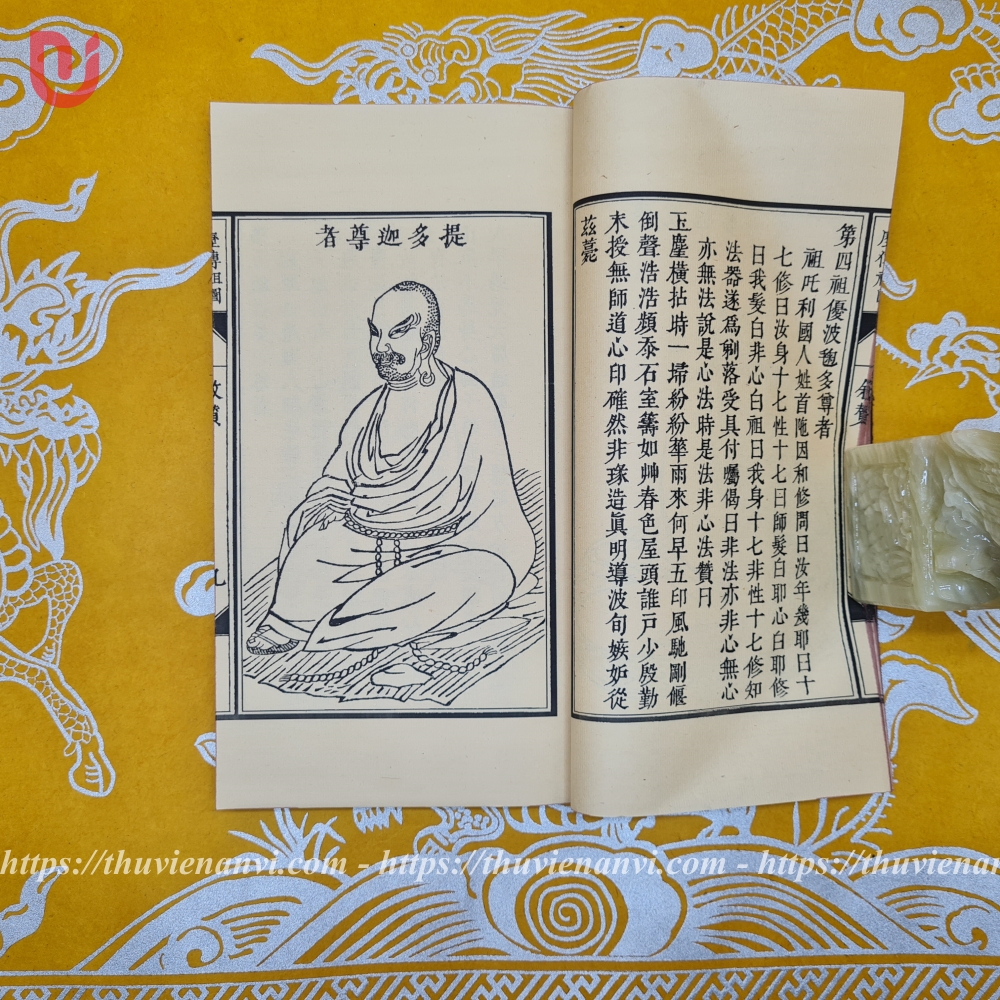 第四祖優波毱多尊者
祖吒利國人姓首陁因和修問曰汝年幾耶曰十
七修曰汝身十七性十七曰師髮白耶心白耶修
曰我髮白非心白祖曰我身十七非性十七修知
法器遂爲剃落受具付囑偈曰非法亦非心無心
亦無法說是心法時是法非心法贊曰
玉塵橫拈時一埽紛紛華雨來何早五印風馳剛偃
倒聲浩浩頻忝石室籌如艸春色屋頭誰戸少殷勤
末授無師道心印確然非琢造眞明導波旬嫉妒從
茲薨
提多迦尊者
歷傳祖圖
贊
九
https://thuvienanvi.com - https://thuvienanvi.com - https://thuvienanvi